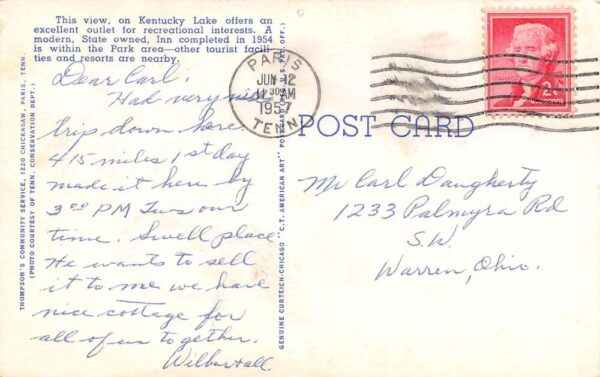 This view, on Kentucky Lake offers an
excellent outlet for recreational interests. A
modern, State owned, Inn completed in 1954
is within the Park area—other tourist facili-
ties and resorts are nearby.
Dear Carl:
Had very nice
trip down here.
415 miles 1st day
made it here by
3:00 PM Tues our
time. Swell place
He wants to sell
it to me we have
nice cottage for
all of us to gether.
Wilbur & all
THOMPSON'S COMMUNITY SERVICE, 1220 CHICKASAW, PARIS, TENN.
(PHOTO COURTESY OF TENN. CONSERVATION DEPT.)
GENUINE CURTEICH-CHICAGO "C.T. AMERICAN ART" POSTCARD (REG. U.S. PAT. OFF.)
PARIS
JUN 12
AM
1957
TENN.
2¢
POST CARD
Mr Carl Daugherty
1233 Palmyra Rd
S.W.
Warren, Ohio.